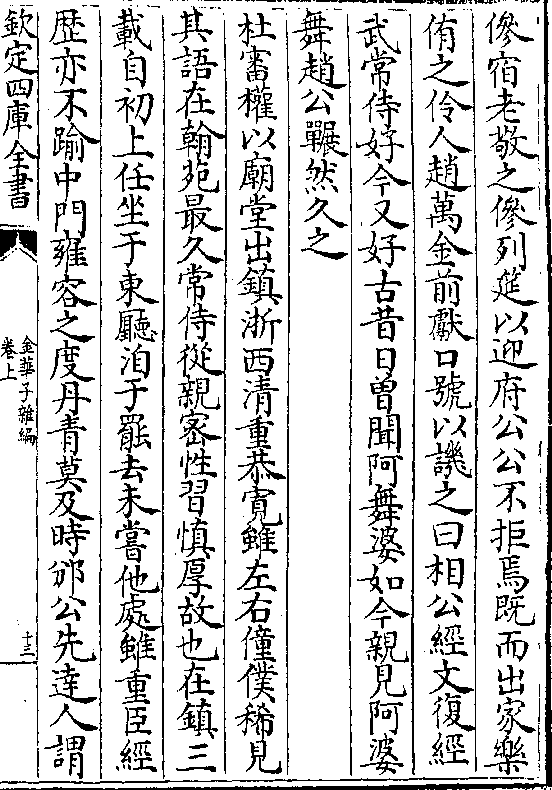 㑺宿老敬之㑺列筵以迎府公公不拒焉既而出家樂
侑之伶人趙萬金前獻口號以譏之曰相公經文復經
武常侍好今又好古昔日曽聞阿舞婆如今親見阿婆
舞趙公冁然久之
杜審權以廟堂出鎮浙西清重恭寛雖左右僮僕稀見
其語在翰苑最久常侍從親宻性習慎厚故也在鎮三
載自初上任坐于東㕔洎于罷去未嘗他處雖重臣經
歴亦不踰中門雍容之度丹青莫及時邠公先達人謂
欽定四庫全書
金華子雜編
卷上
十三